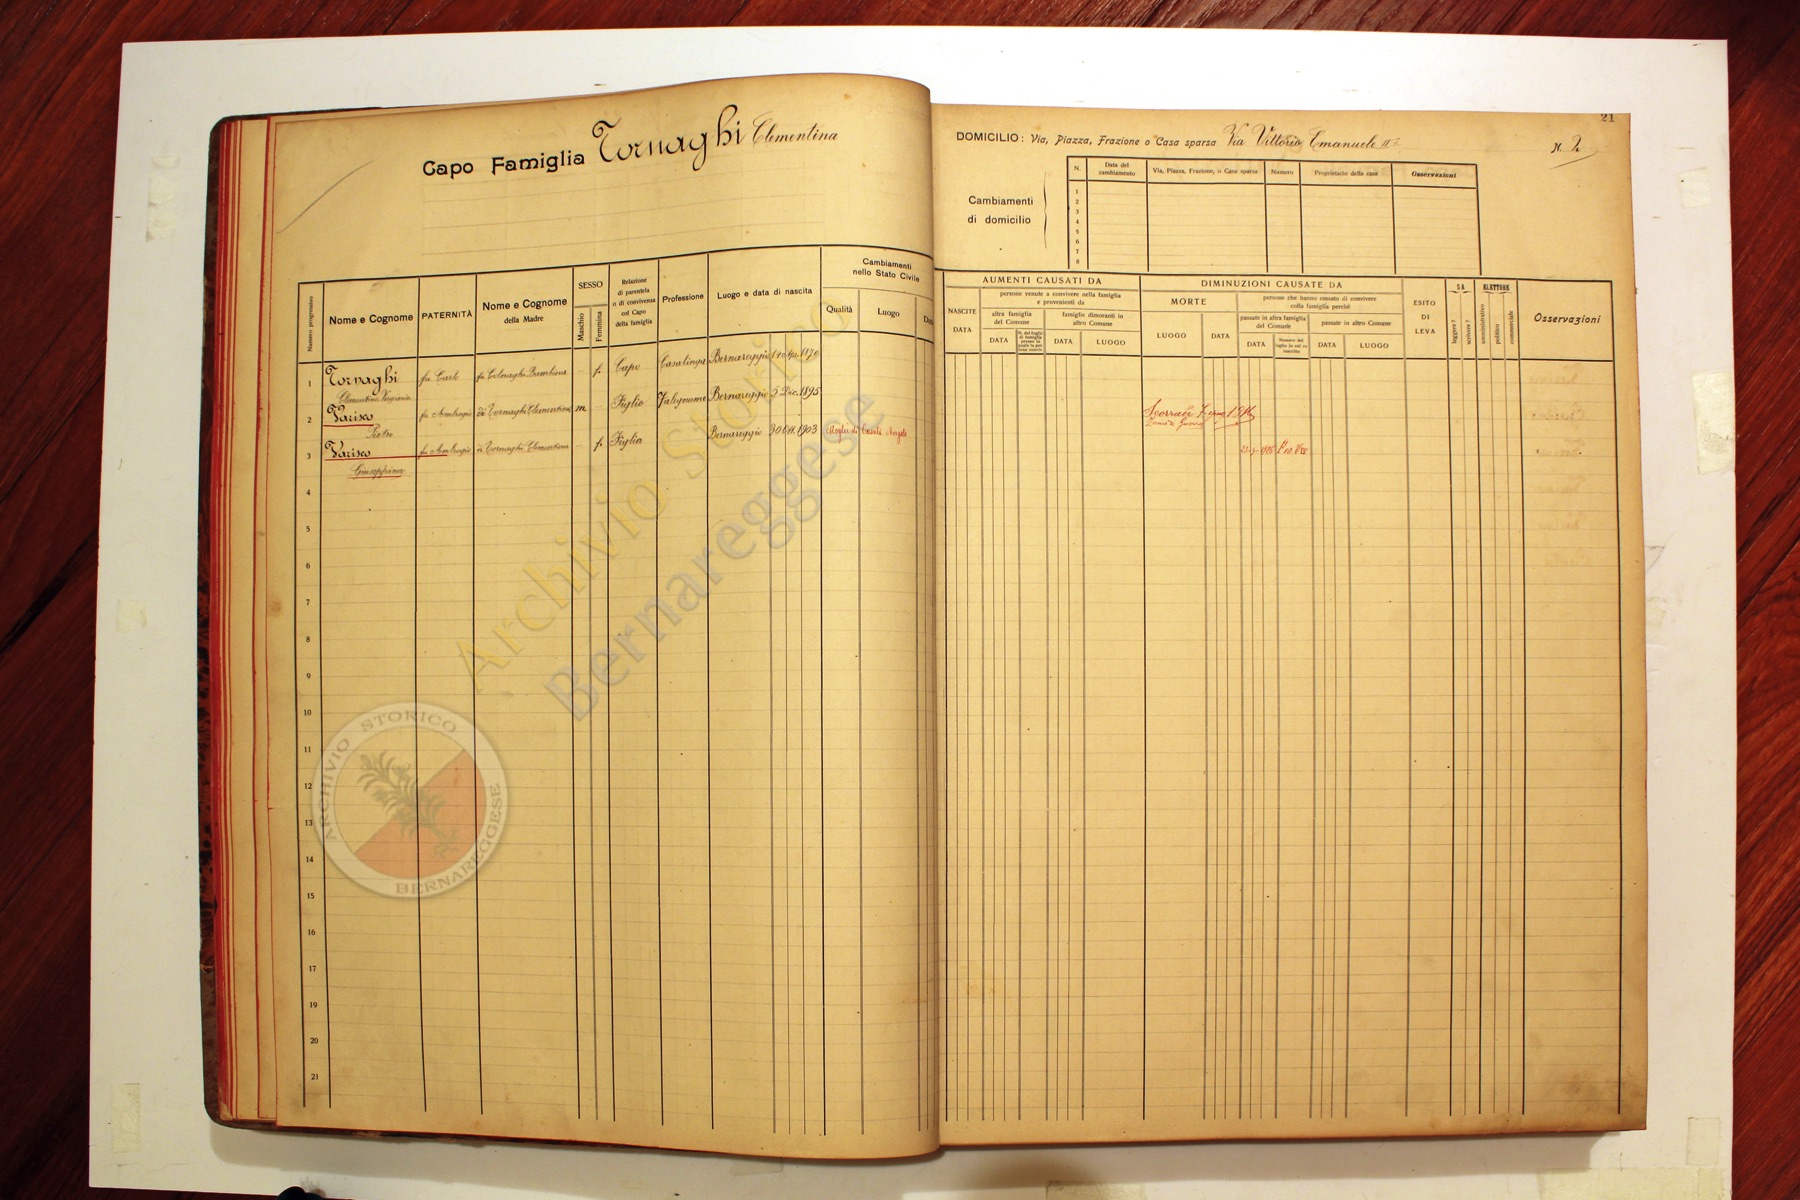 21
Capo Famiglia Tornaghi Clementina
DOMICILIO: Via, Piazza, Frazione o Casa sparsa Via Vittorio Emanuele II° N. 2
Cambiamenti
di domicilio
N. Data del cambiamento Via, Piazza, Frazione, o Casa sparsa Numero Proprietario della casa Osservazioni
1
2
3
4
5
6
7
8
Numero progressivo
Nome e Cognome
PATERNITÀ
Nome e Cognome
della Madre
SESSO
Maschio
Femmina
Relazione
di parentela
o di convivenza
col Capo
della famiglia
Professione
Luogo e data di nascita
Cambiamenti
nello Stato Civile
Qualità
Luogo
AUMENTI CAUSATI DA
NASCITE
DATA
persone venute a convivere nella famiglia
e provenienti da
altra famiglia
del Comune
DATA
famiglie dimoranti in
altro Comune
DATA
LUOGO
DIMINUZIONI CAUSATE DA
MORTE
LUOGO
DATA
persone che hanno cessato di convivere
colla famiglia perchè
passate in altra famiglia
del Comune
DATA
passate in altro Comune
DATA
LUOGO
ESITO
DI
LEVA
SA
leggere?
scrivere?
ELETTORE
amministrativo
politico
commerciale
Osservazioni
1 Tornaghi fu Carlo fu Colnaghi Bambina f. Capo Casalinga Bernareggio 1870
Clementina
2 Varisco fu Ambrogio di Tornaghi Clementina m Figlio Falegname Bernareggio 2 Dic. 1895
Pietro
3 Varisco fu Ambrogio di Tornaghi Clementina f. Figlia Bernareggio 30 Ott. 1903 Moglie di
Giuseppina
4
5
6
7
8
9
10
11
12
13
14
15
16
17
18
19
20
21
Archivio Storico
Bernareggese
ARCHIVIO STORICO
BERNAREGGESE